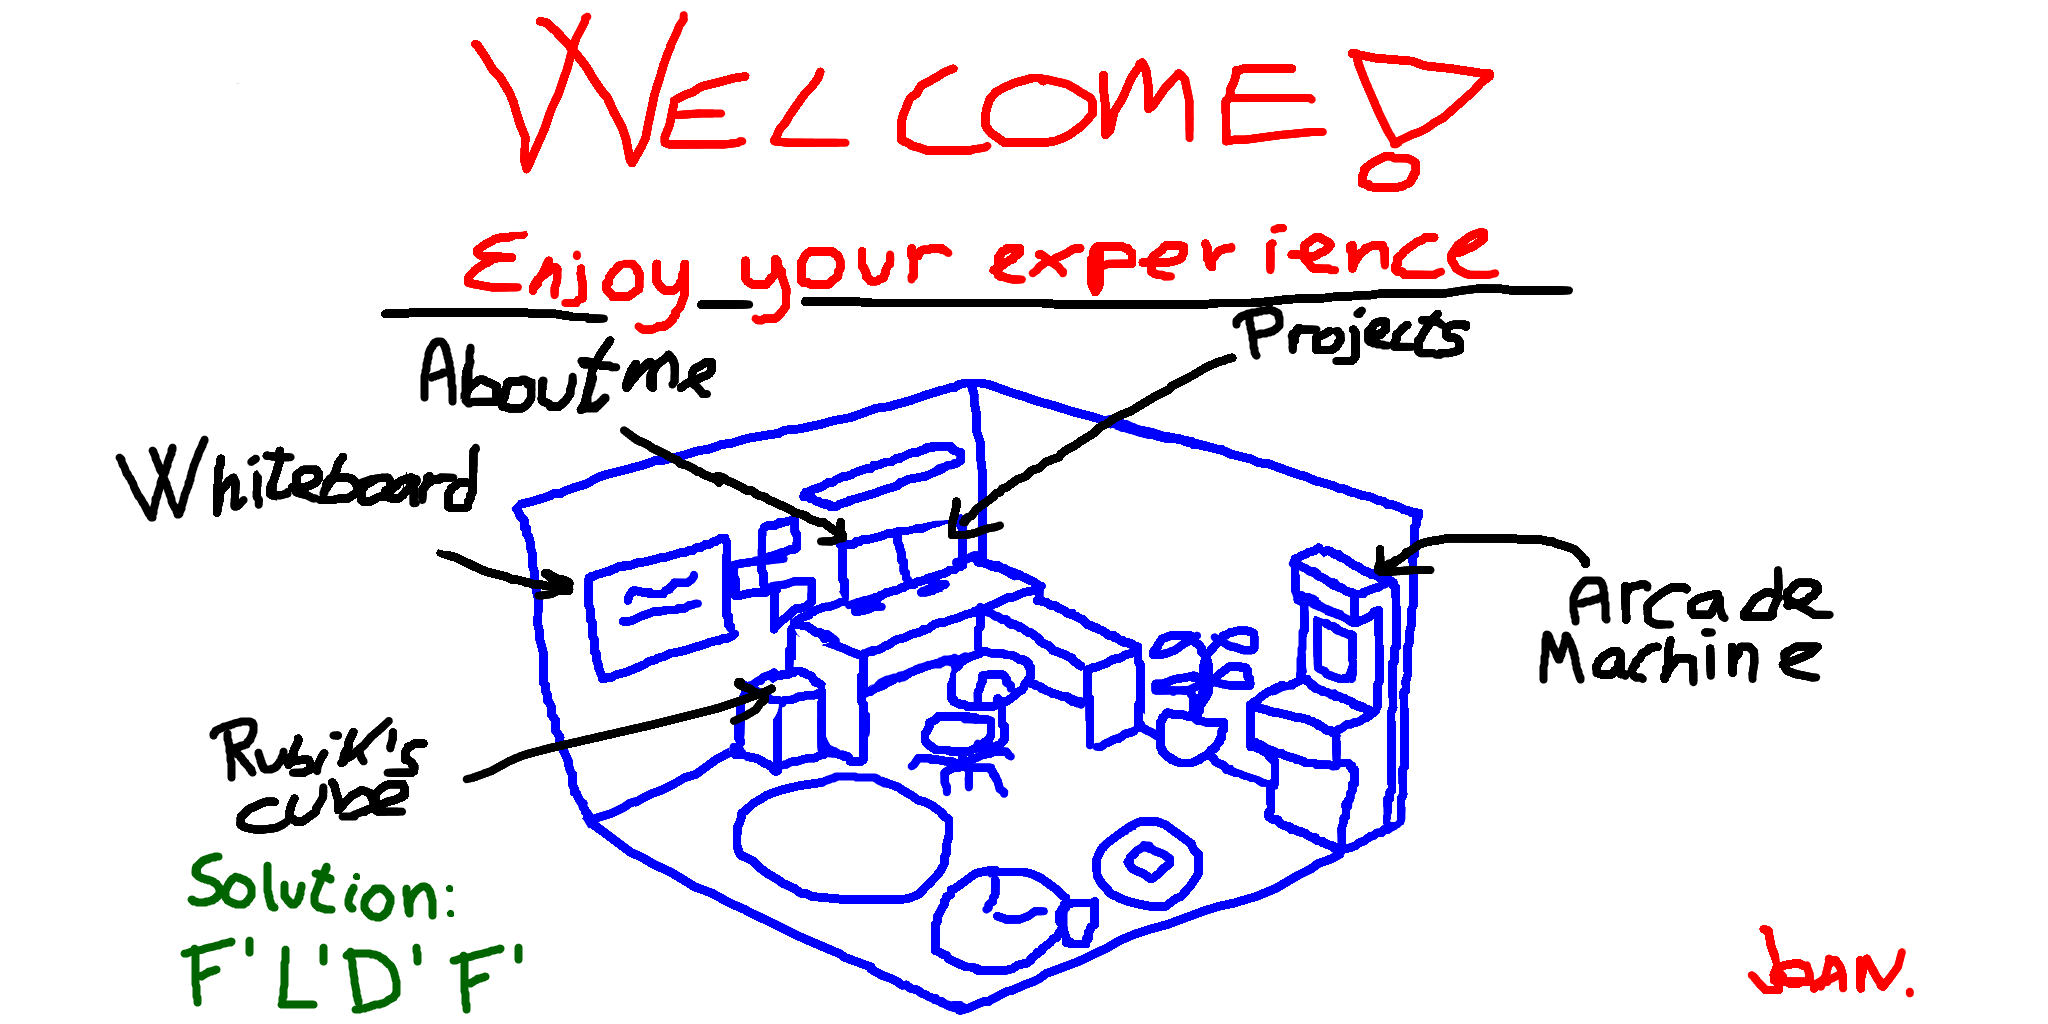 WELCOME!
Enjoy your experience
About me
Projects
Whiteboard
Arcade
Machine
Rubik's
cube
Solution:
F' L' D' F'
JOAN.